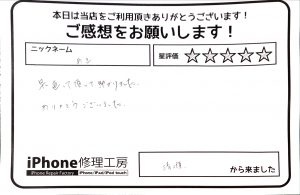 本日は当店をご利用頂きありがとうございます！
ご感想をお願いします！
ニックネーム
星評価 ☆☆☆☆☆
早急に直して頂いて助かりました。
ありがとうございました。
iPhone修理工房
iPhone Repair Factory iPhone/iPad/iPod touch
から来ました